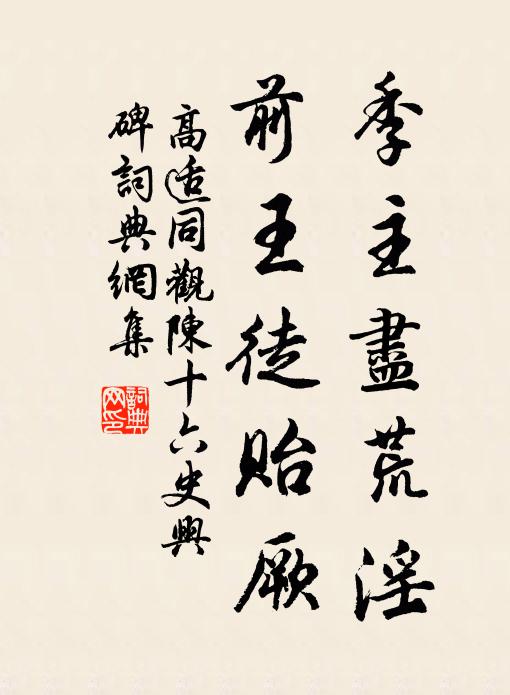 季主盡荒淫
前王徒貽厥
高适同觀陳十六史興
碑詞典網集
詞典
网印